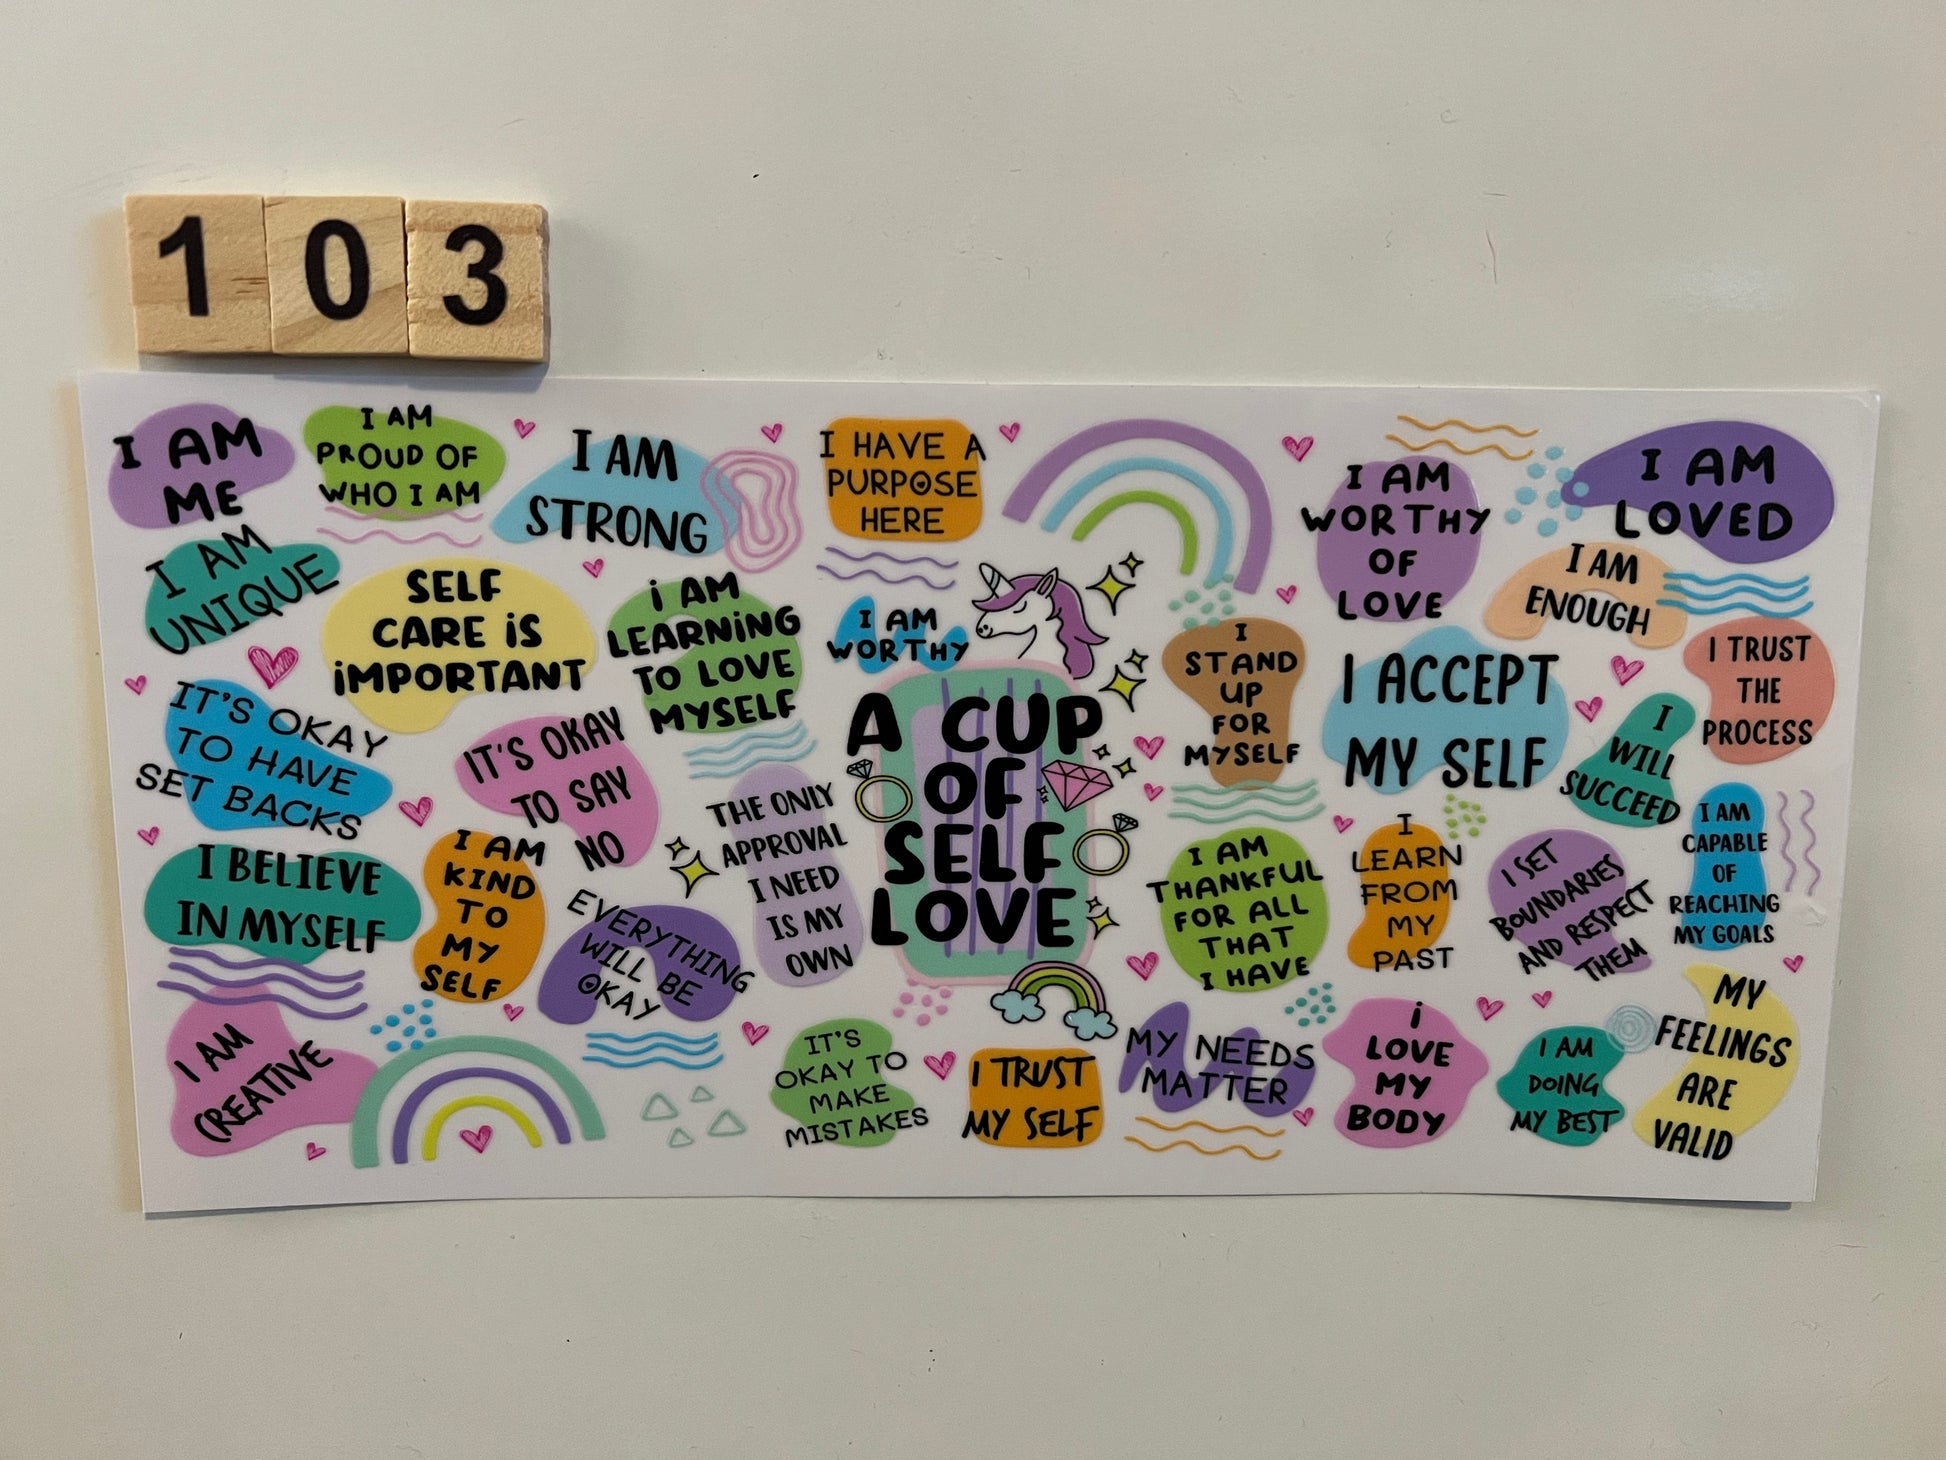 103
I AM
ME
I AM
PROUD OF
WHO I AM
I AM
STRONG
I HAVE A
PURPOSE
HERE
I AM
WORTHY
OF
LOVE
I AM
LOVED
I AM
UNIQUE
SELF
CARE iS
iMPORTANT
i AM
LEARNiNG
TO LOVE
MYSELF
I AM
WORTHY
I
STAND
UP
FOR
MYSELF
I AM
ENOUGH
I ACCEPT
MY SELF
I TRUST
THE
PROCESS
IT'S OKAY
TO HAVE
SET BACKS
IT'S OKAY
TO SAY
NO
THE ONLY
APPROVAL
I NEED
IS MY
OWN
A CUP
OF
SELF
LOVE
I
WILL
SUCCEED
I BELIEVE
IN MYSELF
I AM
KIND
TO
MY
SELF
EVERYTHING
WILL BE
OKAY
I AM
THANKFUL
FOR ALL
THAT
I HAVE
I
LEARN
FROM
MY
PAST
I SET
BOUNDARIES
AND RESPECT
THEM
I AM
CAPABLE
OF
REACHING
MY GOALS
I AM
CREATIVE
IT'S
OKAY TO
MAKE
MISTAKES
I TRUST
MY SELF
MY NEEDS
MATTER
i
LOVE
MY
BODY
I AM
DOING
MY BEST
MY
FEELINGS
ARE
VALID